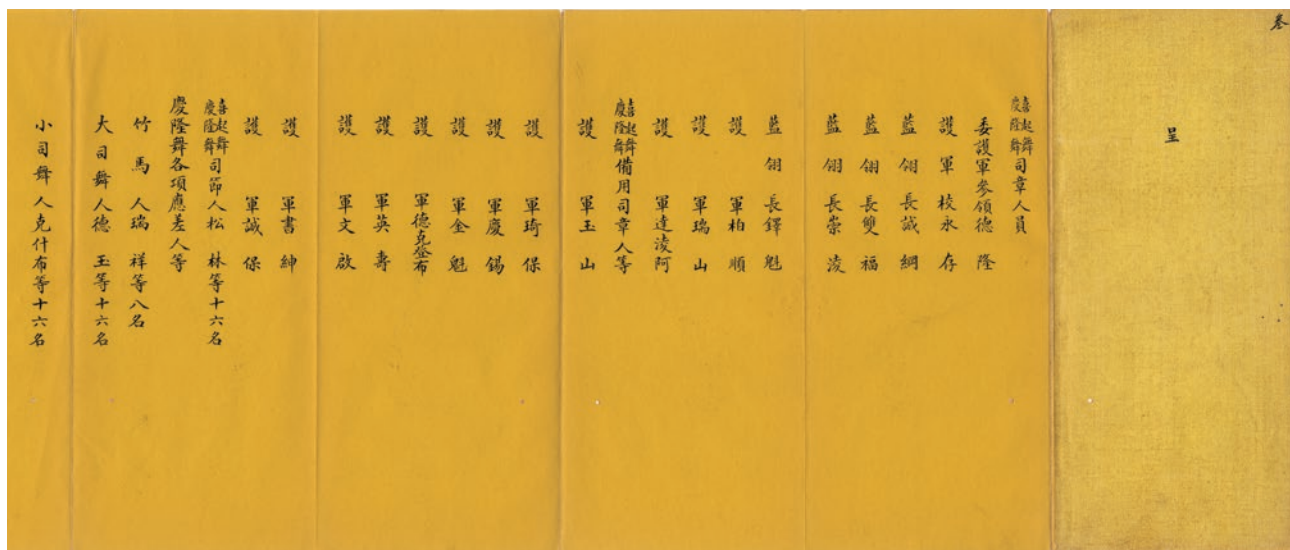 叁
呈
喜起舞慶隆舞司章人員
委護軍參領德隆
護軍校永存
藍翎長誠綱
藍翎長雙福
藍翎長崇淩
藍翎長鐸魁
護軍柏順
護軍瑞山
護軍達淩阿
喜起舞慶隆舞備用司章人等
護軍玉山
護軍琦保
護軍慶錫
護軍金魁
護軍德克登布
護軍英壽
護軍文啟
護軍書紳
護軍誠保
喜起舞慶隆舞司節人松林等十六名
慶隆舞各項應差人等
竹馬人瑞祥等八名
大司舞人德玉等十六名
小司舞人克什布等十六名